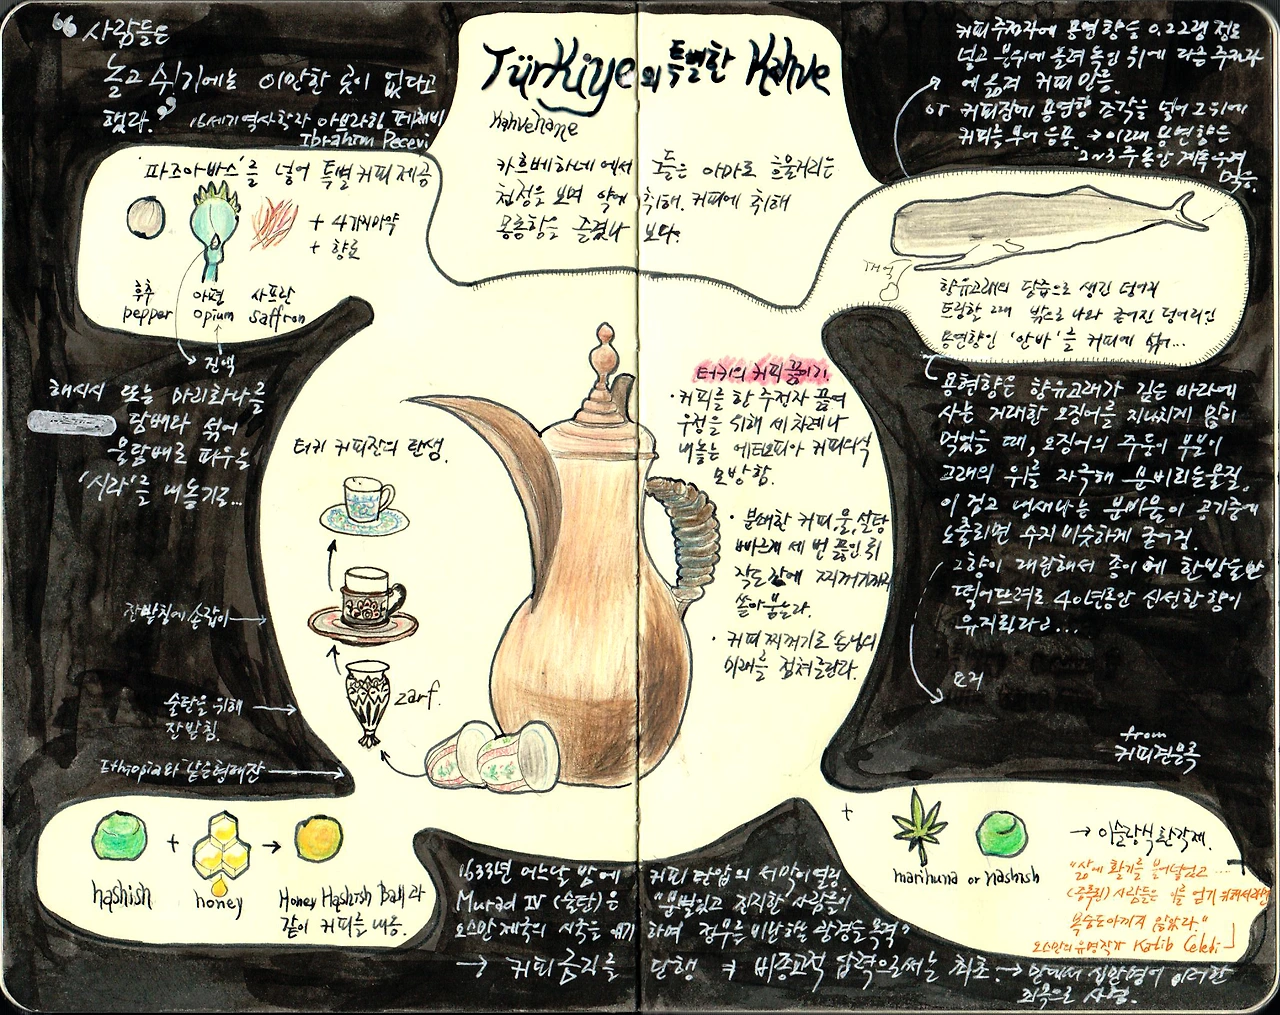 "사람들은
놀고 쉬기에는 이만한 곳이 없다고
했다." 16세기 역사학자 아브라힘 페체비
Ibrahim Pecevi
Türkiye의 특별한 Kahve
Kahvehane
카흐베하네에서
첨정을 보며 약에 취해. 커피에 취해
몽롱함을 즐겼나 보다.
'파즈아바스'를 넣어 특별 커피 제공
+ 4가지 마약
+ 향료
후추
pepper
아편
opium
사프란
saffron
진액
해시시 또는 마리화나를
담배와 섞어
물담배로 파우는
'시라'를 내놓기도...
커피 주전자에 용연향을 0.22램 정도
넣고 분위에 올려 녹인 뒤에 다른 주전자
에 옮겨 커피 만듦.
or 커피잔에 용연향 조각을 넣어 그 위에
커피를 부어 음용. → 이때 용연향은
2~3주 동안 계속
먹음.
향유고래의 담즙으로 생긴 덩어리
트림할 때 밖으로 나와 굳어진 덩어리인
용연향인 '안바'를 커피에 섞어...
용현향은 향유고래가 깊은 바다에
사는 거대한 오징어를 지나치게 많이
먹었을 때, 오징어의 주둥이 부분이
고래의 위를 자극해 분비되는 물질.
이 검고 냄새나는 분비물이 공기중에
노출되면 수지 비슷하게 굳어짐.
그향이 대단해서 종이에 한방울만
떨어뜨려도 40년동안 신선한 향이
유지된다고...
from
커피견문록
터키의 커피 끓이기.
· 커피를 한 주전자 끓여
우정을 위해 세 차례나
내놓는 에티오피아 커피의식
모방함.
· 분쇄한 커피, 물, 설탕
빠르게 세 번 끓인 뒤
작은 잔에 찌꺼기까지
쏟아붓는다.
· 커피 찌꺼기로 손님의
미래를 점쳐준다.
터키 커피잔의 탄생.
zarf.
잔받침에 손잡이
술탄을 위해
잔받침.
Ethiopia와 같은 형태 잔
+
→
hashish
honey
Honey Hashish Ball과
같이 커피를 내놓.
1633년 어느날 밤에 커피 탄압의 서막이 열림
Murad IV (술탄)은 "분별있고 진지한 사람들이
오스만 제국의 시국을 얘기하며 정무를 비난하는 광경을 목격"
→ 커피 금지를 단행 비종교적 압력으로써는 최초. → 십만명이 이러한
죄목으로 사형.
+
marihuna or hashish
→ 이슬람식 환각제.
"삶에 활기를 불어넣고...
(중독된) 사람들은 이를 얻기 위해서라면
죽음도 아끼지 않았다."
오스만의 유명작가 Katib Celebi